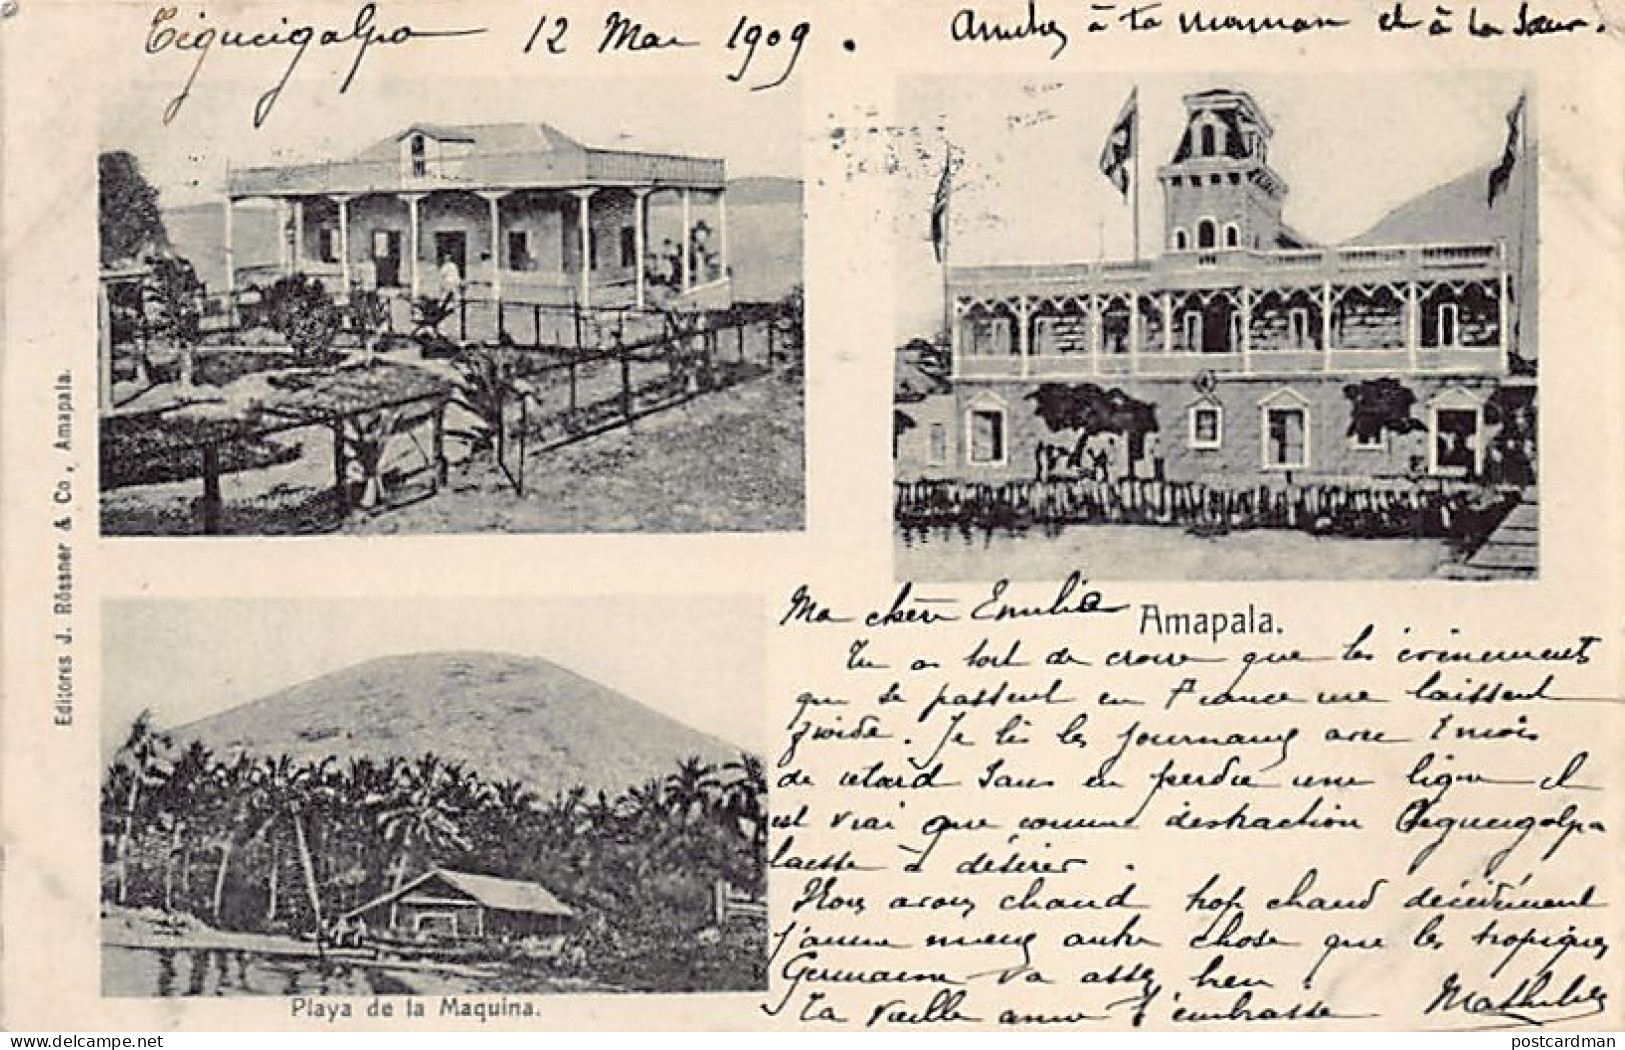 Tegucigalpa 12 Mai 1909.
Amitiés à ta maman et à ta sœur.
Editores J. Rössner & Co, Amapala.
Amapala.
Ma chère Emilie
Tu as tort de croire que les évènements
qui se passent en France me laissent
froide. Je lis les journaux avec 1 mois
de retard sans en perdre une ligne il
est vrai que comme distraction Tegucigalpa
laisse à désirer.
Nous avons chaud trop chaud décidément
j'aime mieux autre chose que les tropiques
Germaine va assez bien.
Ta vieille amie t'embrasse Mathilde
Playa de la Maquina.
postcardman